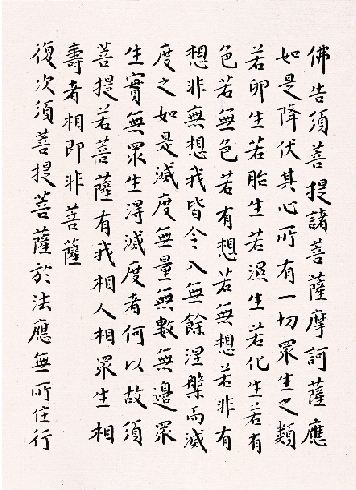 佛告須菩提諸菩薩摩訶薩應
如是降伏其心所有一切眾生之類
若卵生若胎生若濕生若化生若有
色若無色若有想若無想若非有
想非無想我皆令入無餘涅槃而滅
度之如是滅度無量無數無邊眾
生實無眾生得滅度者何以故須
菩提若菩薩有我相人相眾生相
壽者相即非菩薩
復次須菩提菩薩於法應無所住行